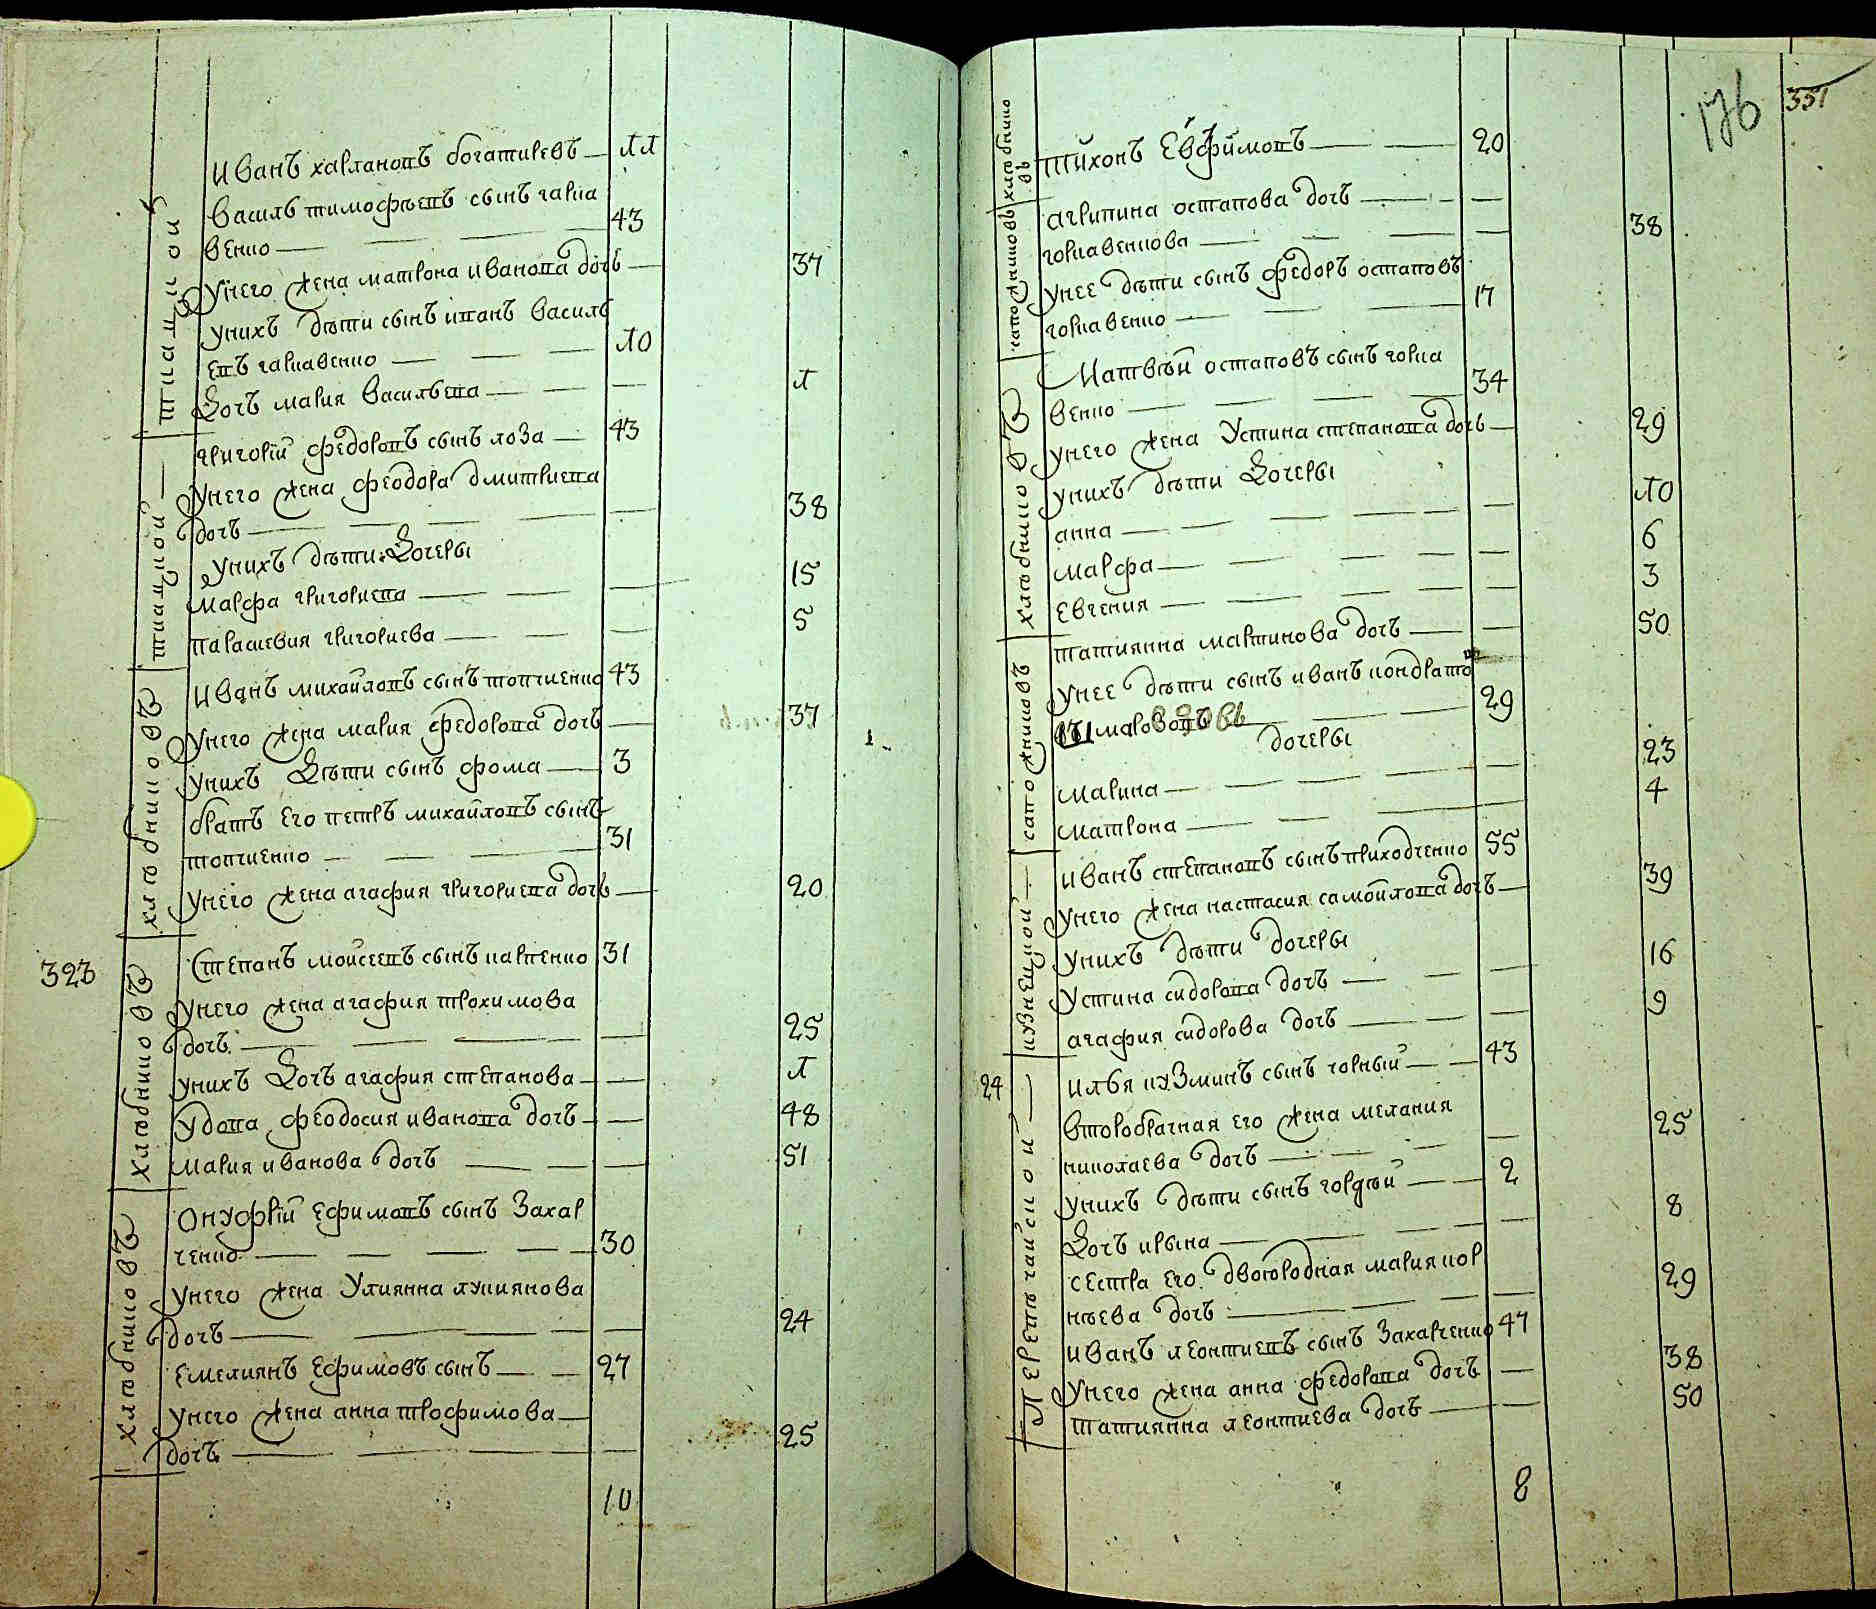 ткацкой
Иванъ харлановъ богатиревъ — 11
Василъ тимофѣевъ сынъ гарка
венко — 43
унего жена матрона иванова дочъ — 37
унихъ дѣти сынъ иванъ василъ
евъ гаркавенко — 10
Дочъ мария василъева — 1
ткацкой
григорій федоровъ сынъ лоза — 43
унего жена феодора дмитриева
дочъ — 38
унихъ дѣти: Дочеры
марфа григориева — 15
параскевия григориева — 5
хлѣбниковъ
иванъ михайловъ сынъ топчиенко 43
унего жена мария федорова дочъ — 37
унихъ Дѣти сынъ фома — 3
братъ его петръ михайловъ сынъ
топчиенко — 31
унего жена агафия григориева дочъ — 20
323
хлѣбниковъ
Степанъ мойсеевъ сынъ карпенко 31
унего жена агафия трохимова
дочъ — 25
унихъ Дочъ агафия степанова — 1
удова феодосия иванова дочъ — 48
мария иванова дочъ — 51
хлѣбниковъ
Онуфрій ефимовъ сынъ Захар
ченко — 30
унего жена Улиянна лукиянова
дочъ — 24
емелиянъ ефимовъ сынъ — 27
унего жена анна трофимова —
дочъ — 25
10
176
351
хлѣбнико
въ
тихонъ Евфимовъ — 20
сапожниковъ
агрипина остапова дочъ —
горкавенкова — 38
унее дѣти сынъ федоръ остаповъ
горкавенко — 17
хлѣбниковъ
Матвѣй остаповъ сынъ горка
венко — 34
унего жена Устина степанова дочъ — 29
унихъ дѣти Дочеры
анна — 10
марфа — 6
евгения — 3
сапожниковъ
татиянна мартинова дочъ — 50
унее дѣти сынъ иванъ кондрато
въ марозовъ — 29
дочеры
марина — 23
матрона — 4
кузнецкой
иванъ степановъ сынъ приходченко 55
унего жена настасия самойлова дочъ — 39
унихъ дѣти дочеры
Устина сидорова дочъ — 16
агафия сидорова дочъ — 9
24
Перепѣчайской
илъя кузминъ сынъ чорный — 43
второбрачная его жена мелания
николаева дочъ — 25
унихъ дѣти сынъ гордѣй — 2
Дочъ ирына — 8
сестра его двоюродная мария кор
нѣева дочъ — 29
иванъ леонтиевъ сынъ Захарченко 47
унего жена анна федорова дочъ — 38
татиянна леонтиева дочъ — 50
8